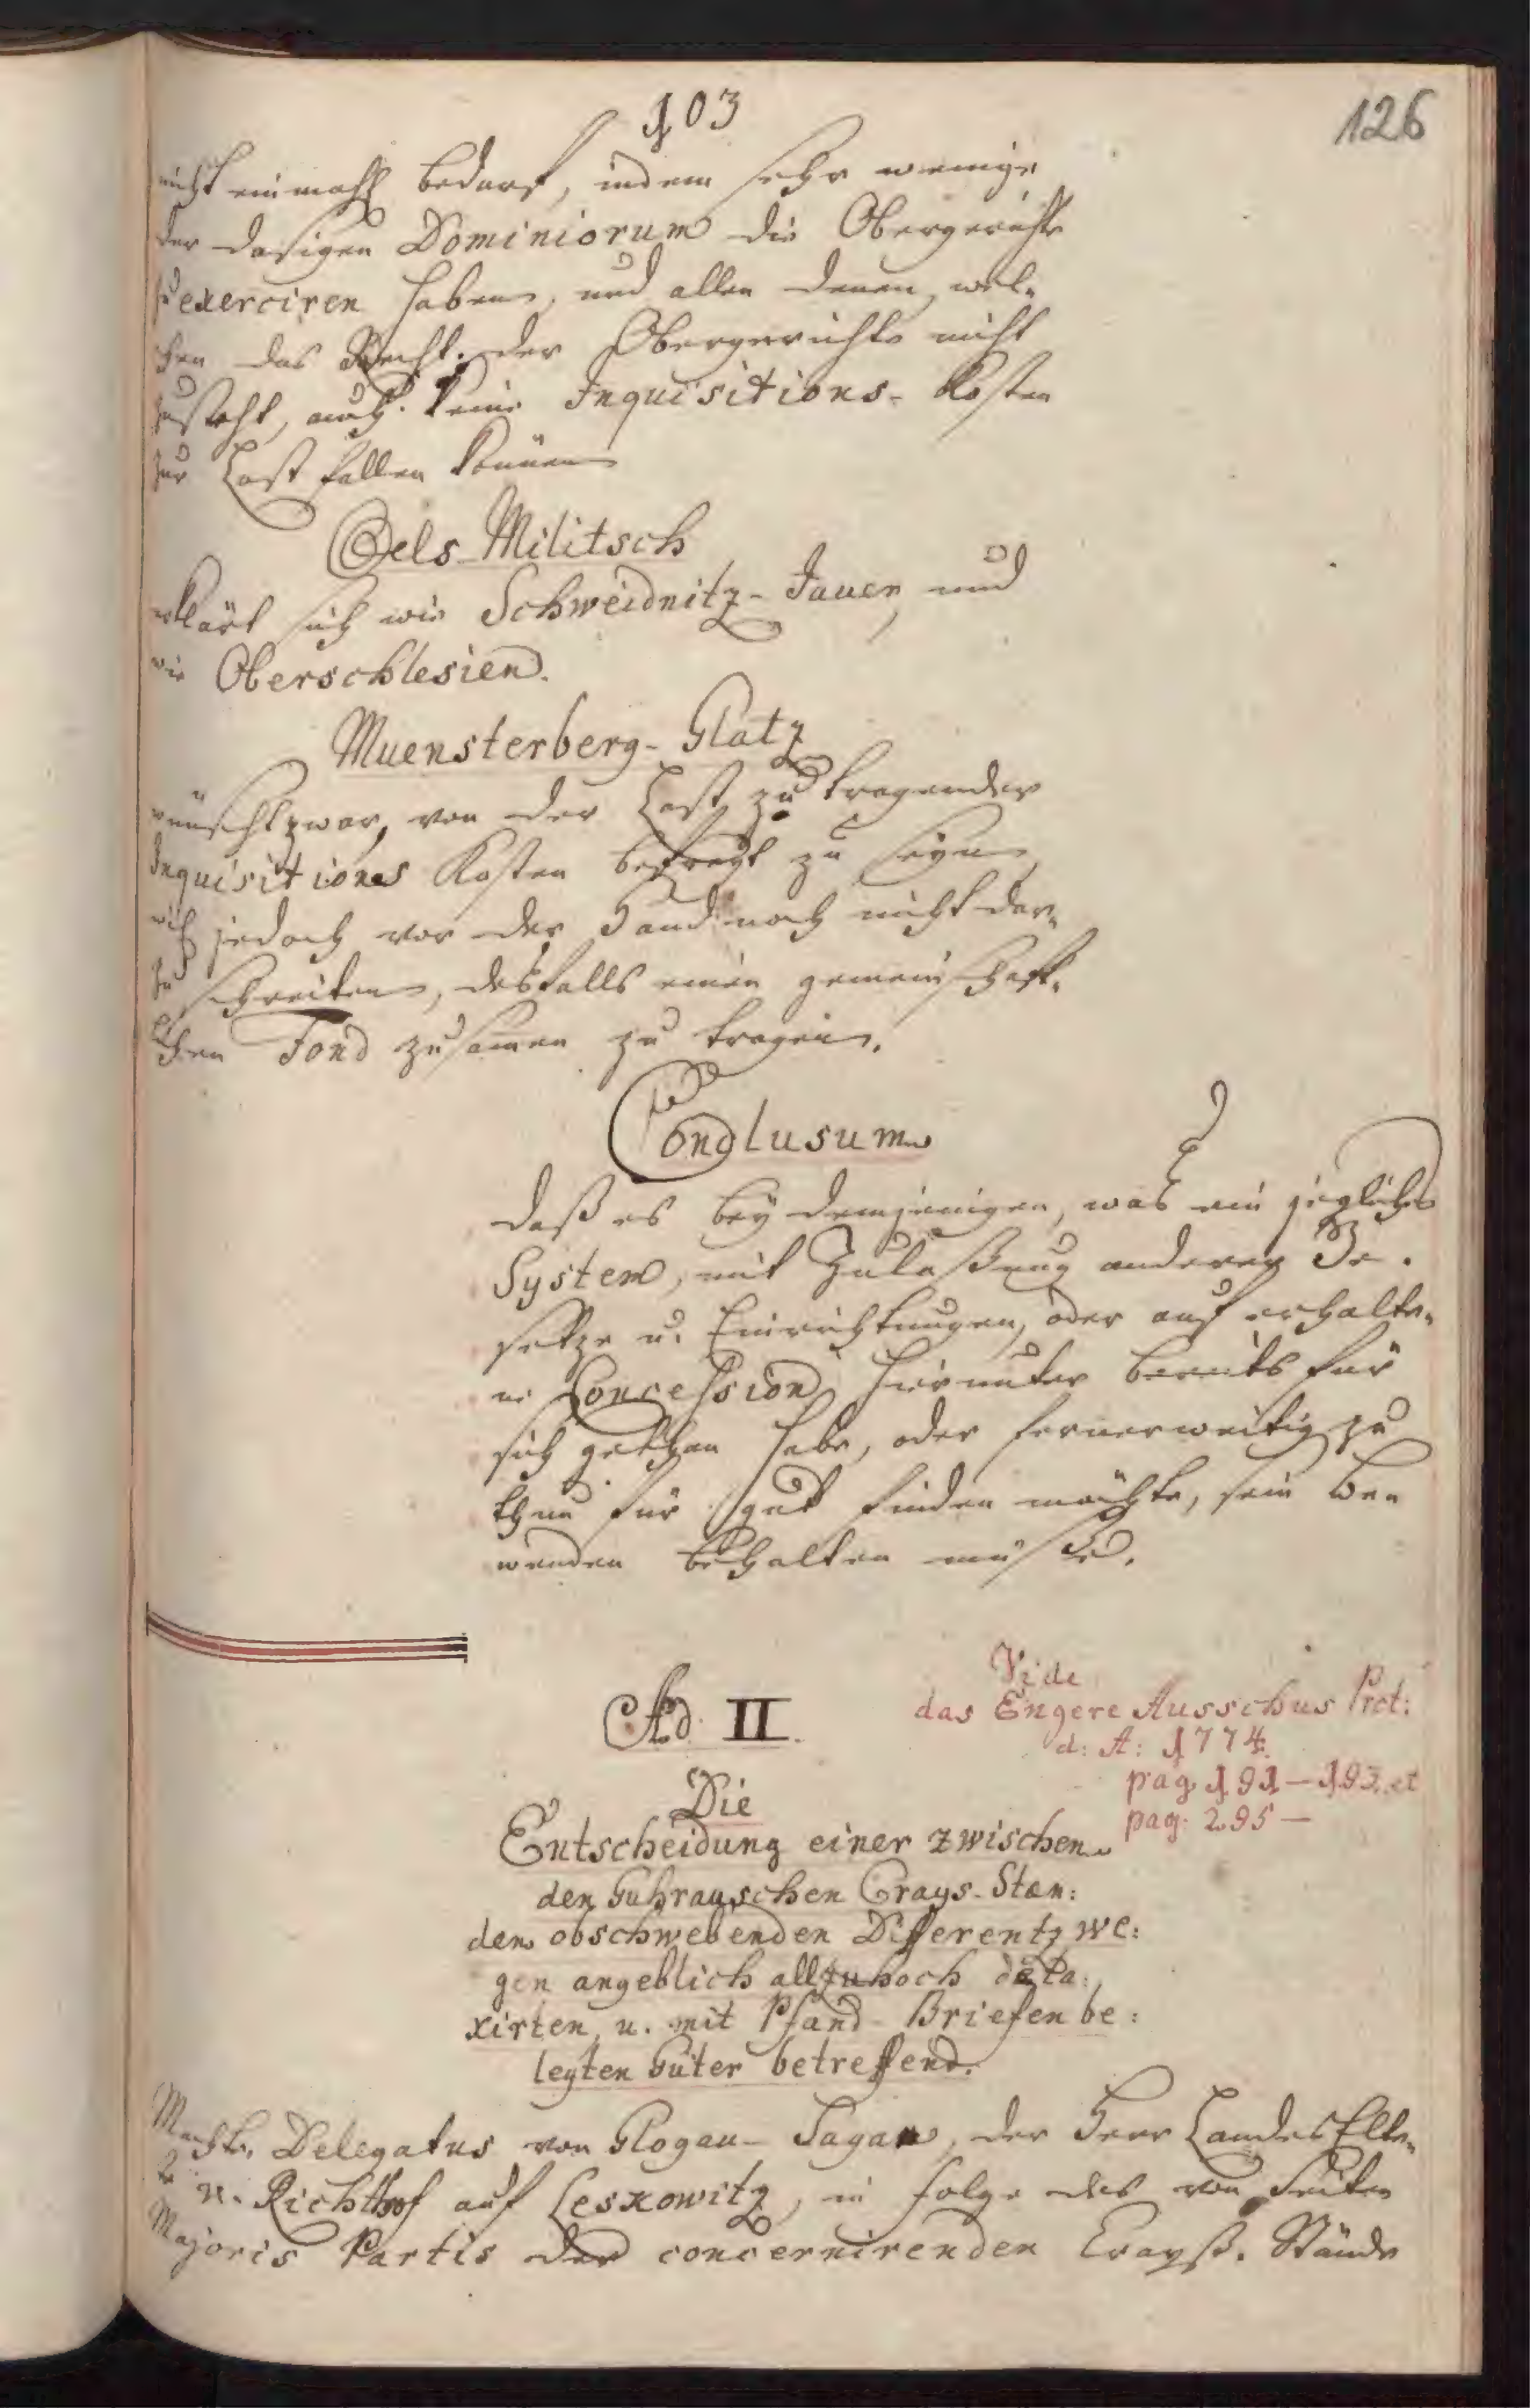 103
126
nicht einmahl bedarf, indem sehr wenige
der dasigen Dominiorum die Obergerichte
zu exerciren haben, und allen denen, wel-
chen das Recht der Obergerichte nicht
zusteht, auch keine Inquisitions-Kosten
zur Last fallen können
Oels-Militsch
erklärt sich wie Schweidnitz-Jauer, und
wie Oberschlesien.
Muensterberg-Glatz
wünscht zwar, von der Last zu tragender
Inquisitions Kosten befreyt zu seyn,
jedoch vor der Hand noch nicht dar-
zu schreiten, desfalls einen gemeinschaft-
lichen Fond zusamen zu tragen.
Conclusum
daß es bey demjenigen, was ein jegliches
System, mit Zulaßung anderer Ge-
setze u. Einrichtungen, oder auf erhalte-
ne Concession hierunter bereits für
sich gethan habe, oder fernerweitig zu
thun für gut finden möchte, sein Be-
wenden behalten müße.
Vide
das Engere Ausschus Prot:
d: A: 1774.
pag 191 — 193. et
pag. 295 —
Ad II.
Die
Entscheidung einer zwischen
den Guhrauschen Crays-Stæn:
den obschwebenden Differentz we:
gen angeblich allzuhoch deta:
xirten, u. mit Pfand-Briefen be:
legten Güter betreffend.
Machte Delegatus von Glogau-Sagan, der Herr Landes Elte-
v. Richthof auf Leskowitz, in folge des von Seiten
Majoris Partis der concernirenden Crayß-Stände